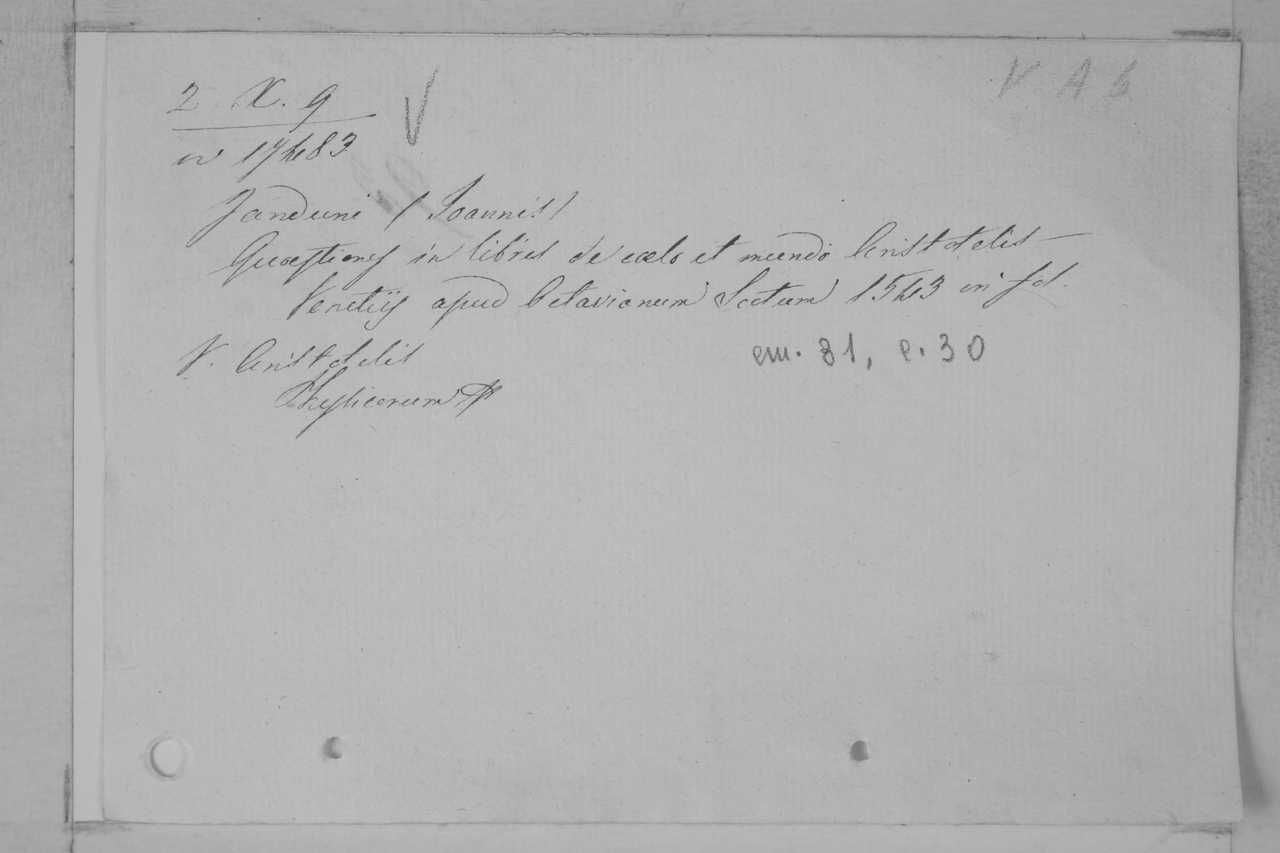 V A
2 X. 9 V
17483
Janduni (Joannis)
Quæstiones in libros de cœlo et mundo Aristotelis
Venetijs apud Octavianum Scotum 1543 in fol.
V. Aristotelis
Physicorum
em. 81, e. 30